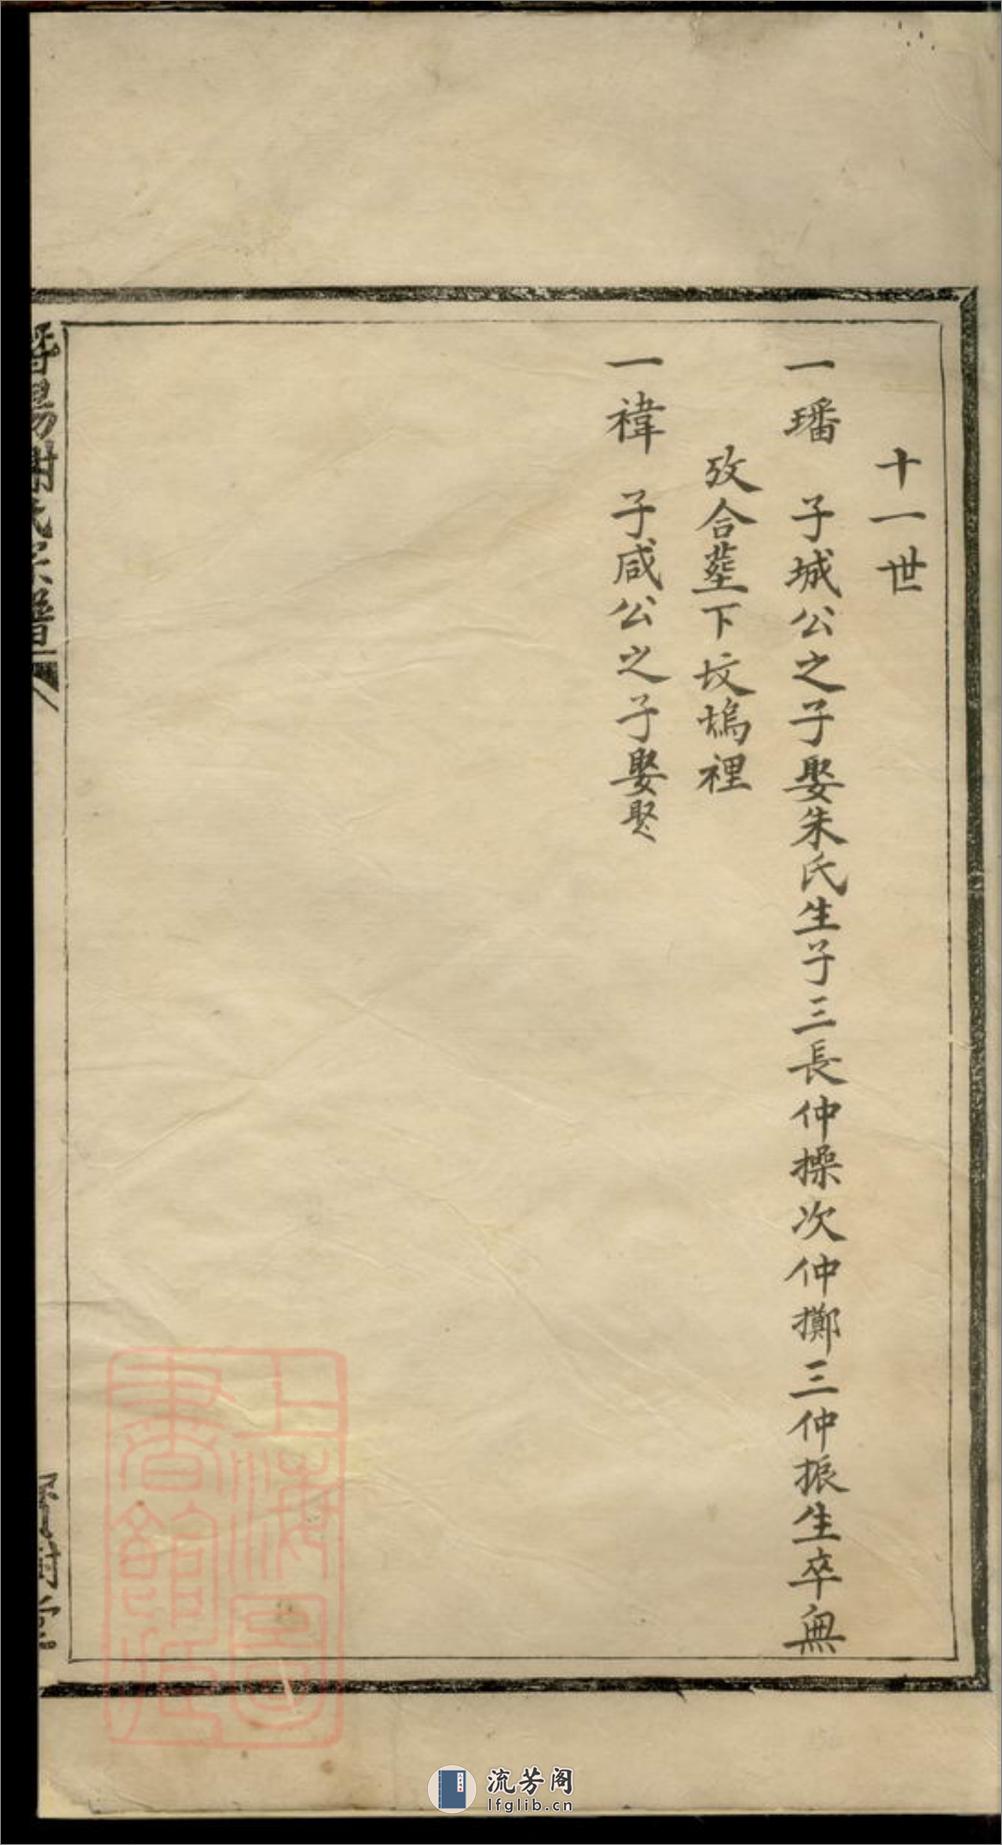 十一世
一璠 子城公之子娶朱氏生子三長仲操次仲擲三仲振生卒無
攷合塟下坟塢裡
一禕 子咸公之子娶娶
暨陽謝氏宗譜
上海圖
書館藏
流芳阁
lfglib.cn